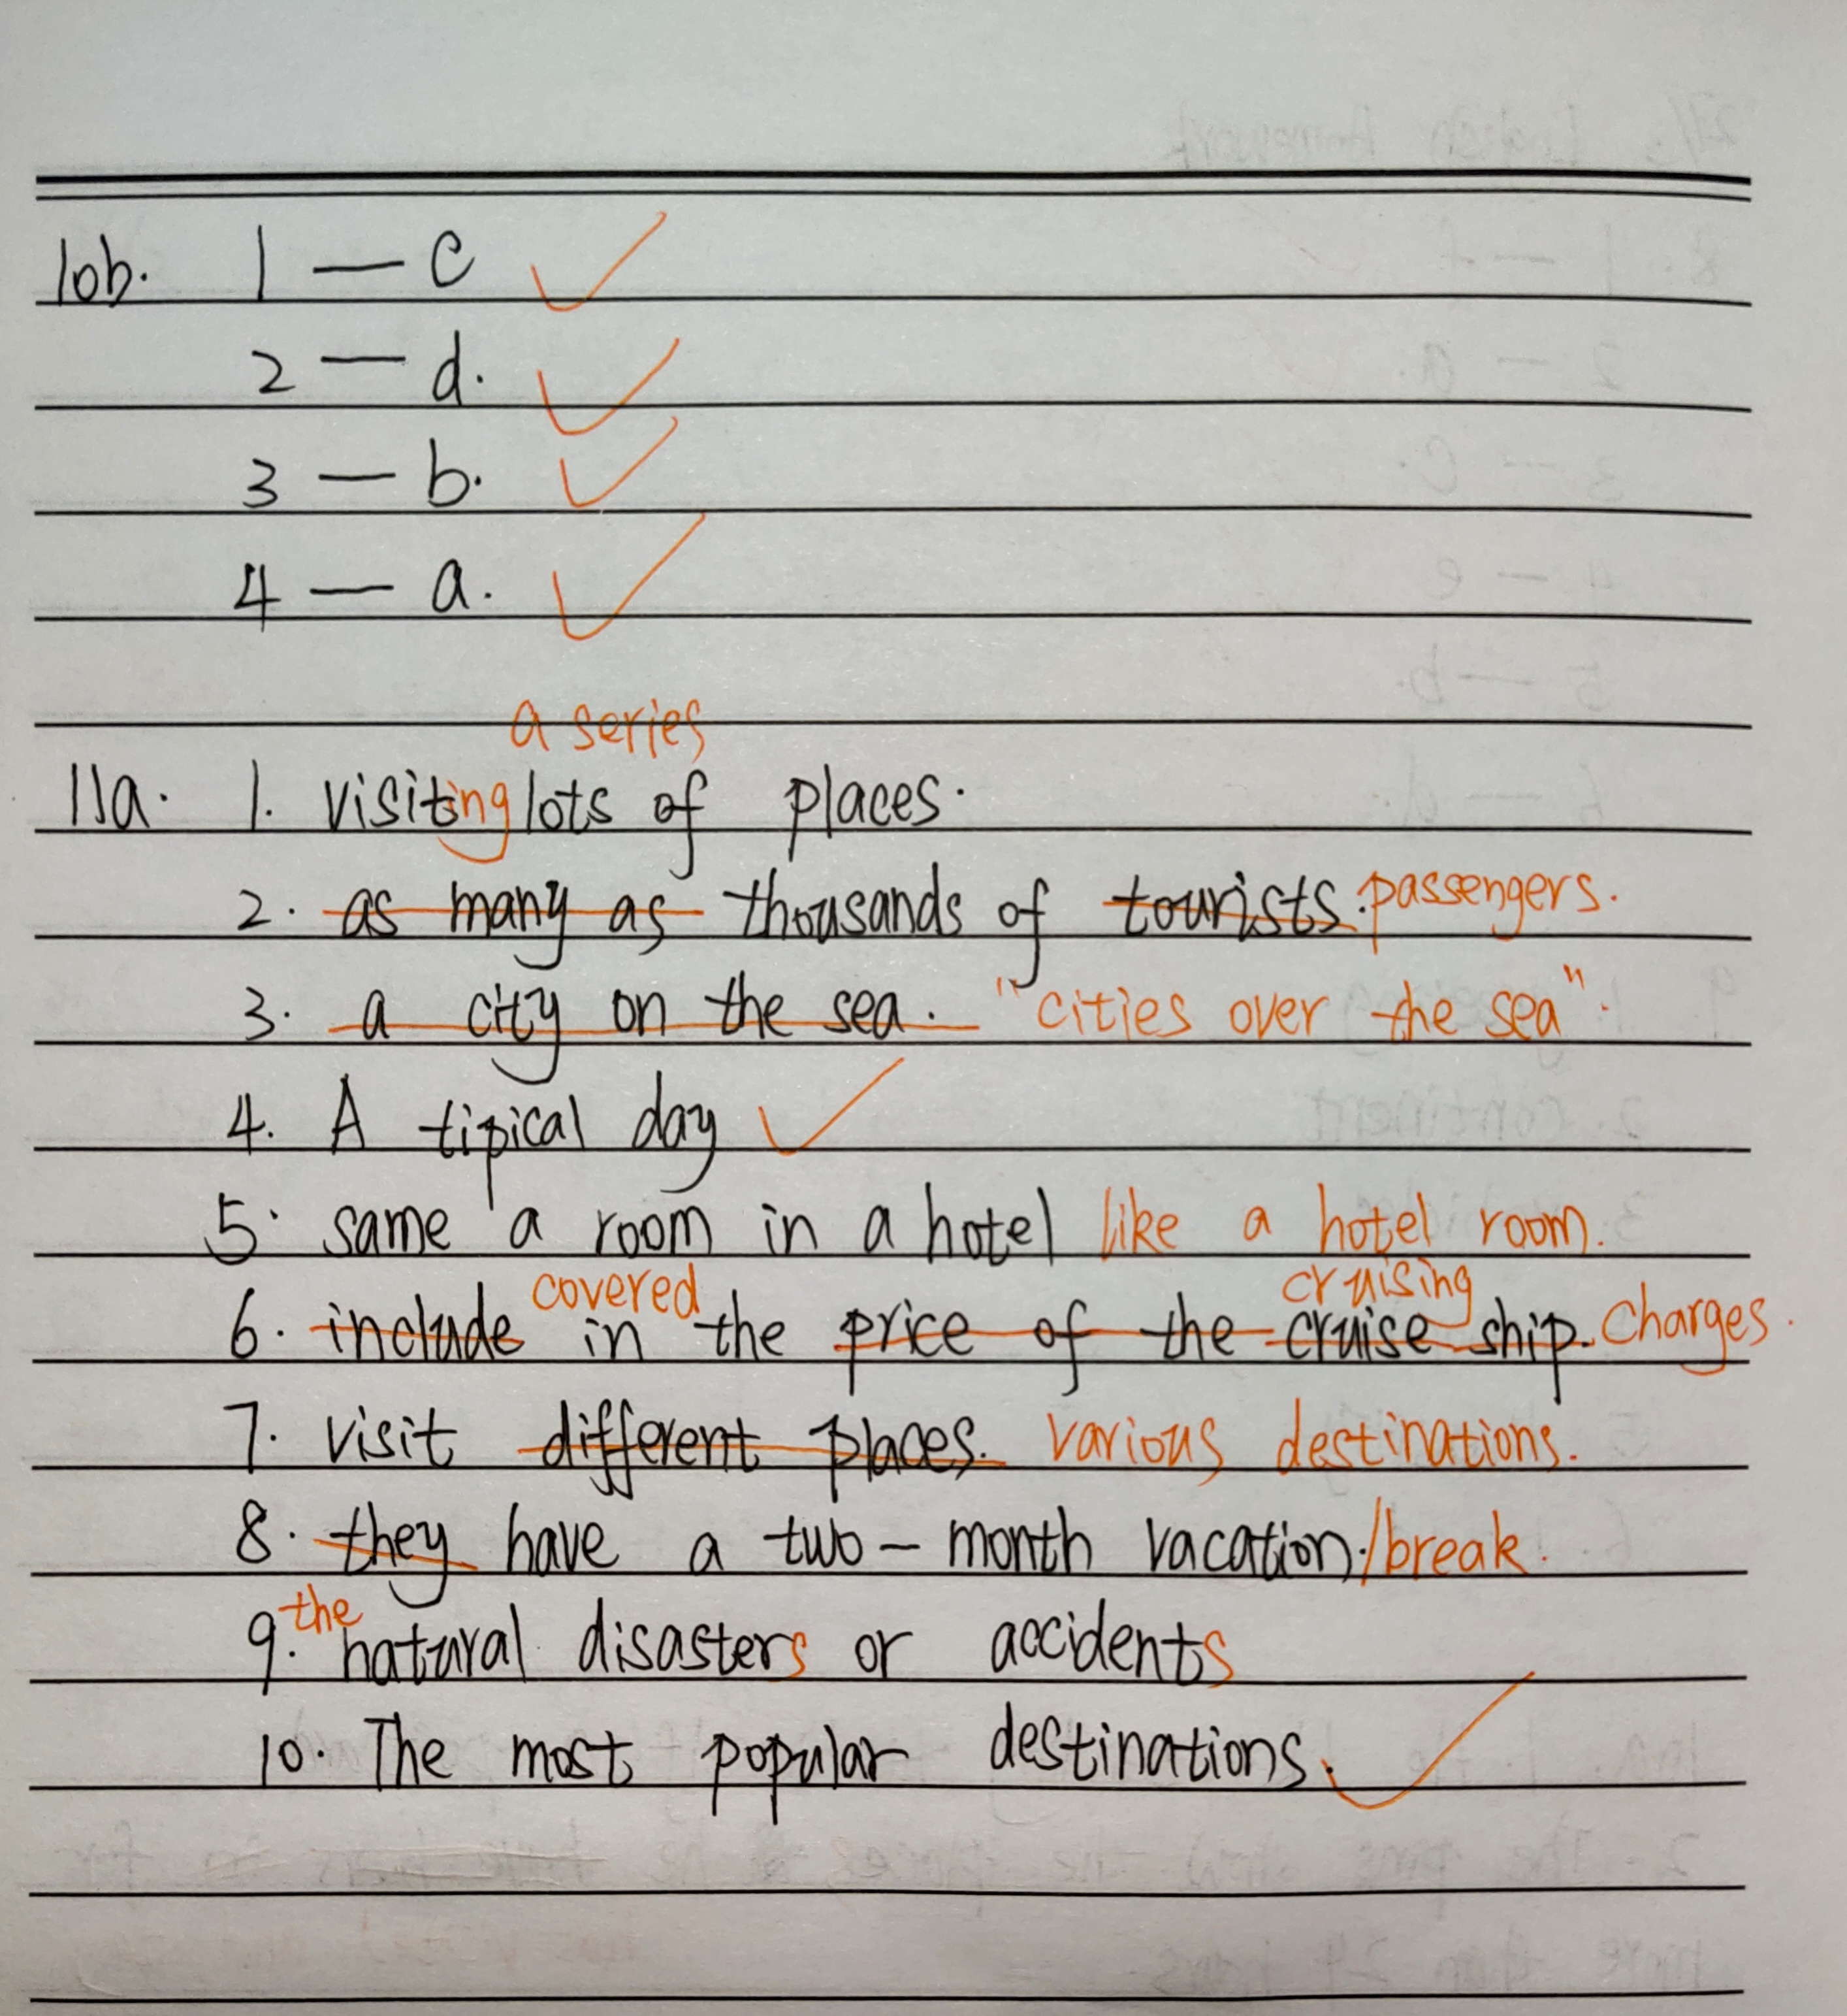 10b. 1 — c
2 — d.
3 — b.
4 — a.
a series
11a. 1. visiting lots of places.
2. as many as thousands of tourists. passengers.
3. a city on the sea. "cities over the sea".
4. A tipical day
5. same a room in a hotel like a hotel room.
covered cruising
6. include in the price of the cruise ship. charges.
7. visit different places. various destinations.
8. they have a two-month vacation./break.
the
9. natural disasters or accidents
10. The most popular destinations.